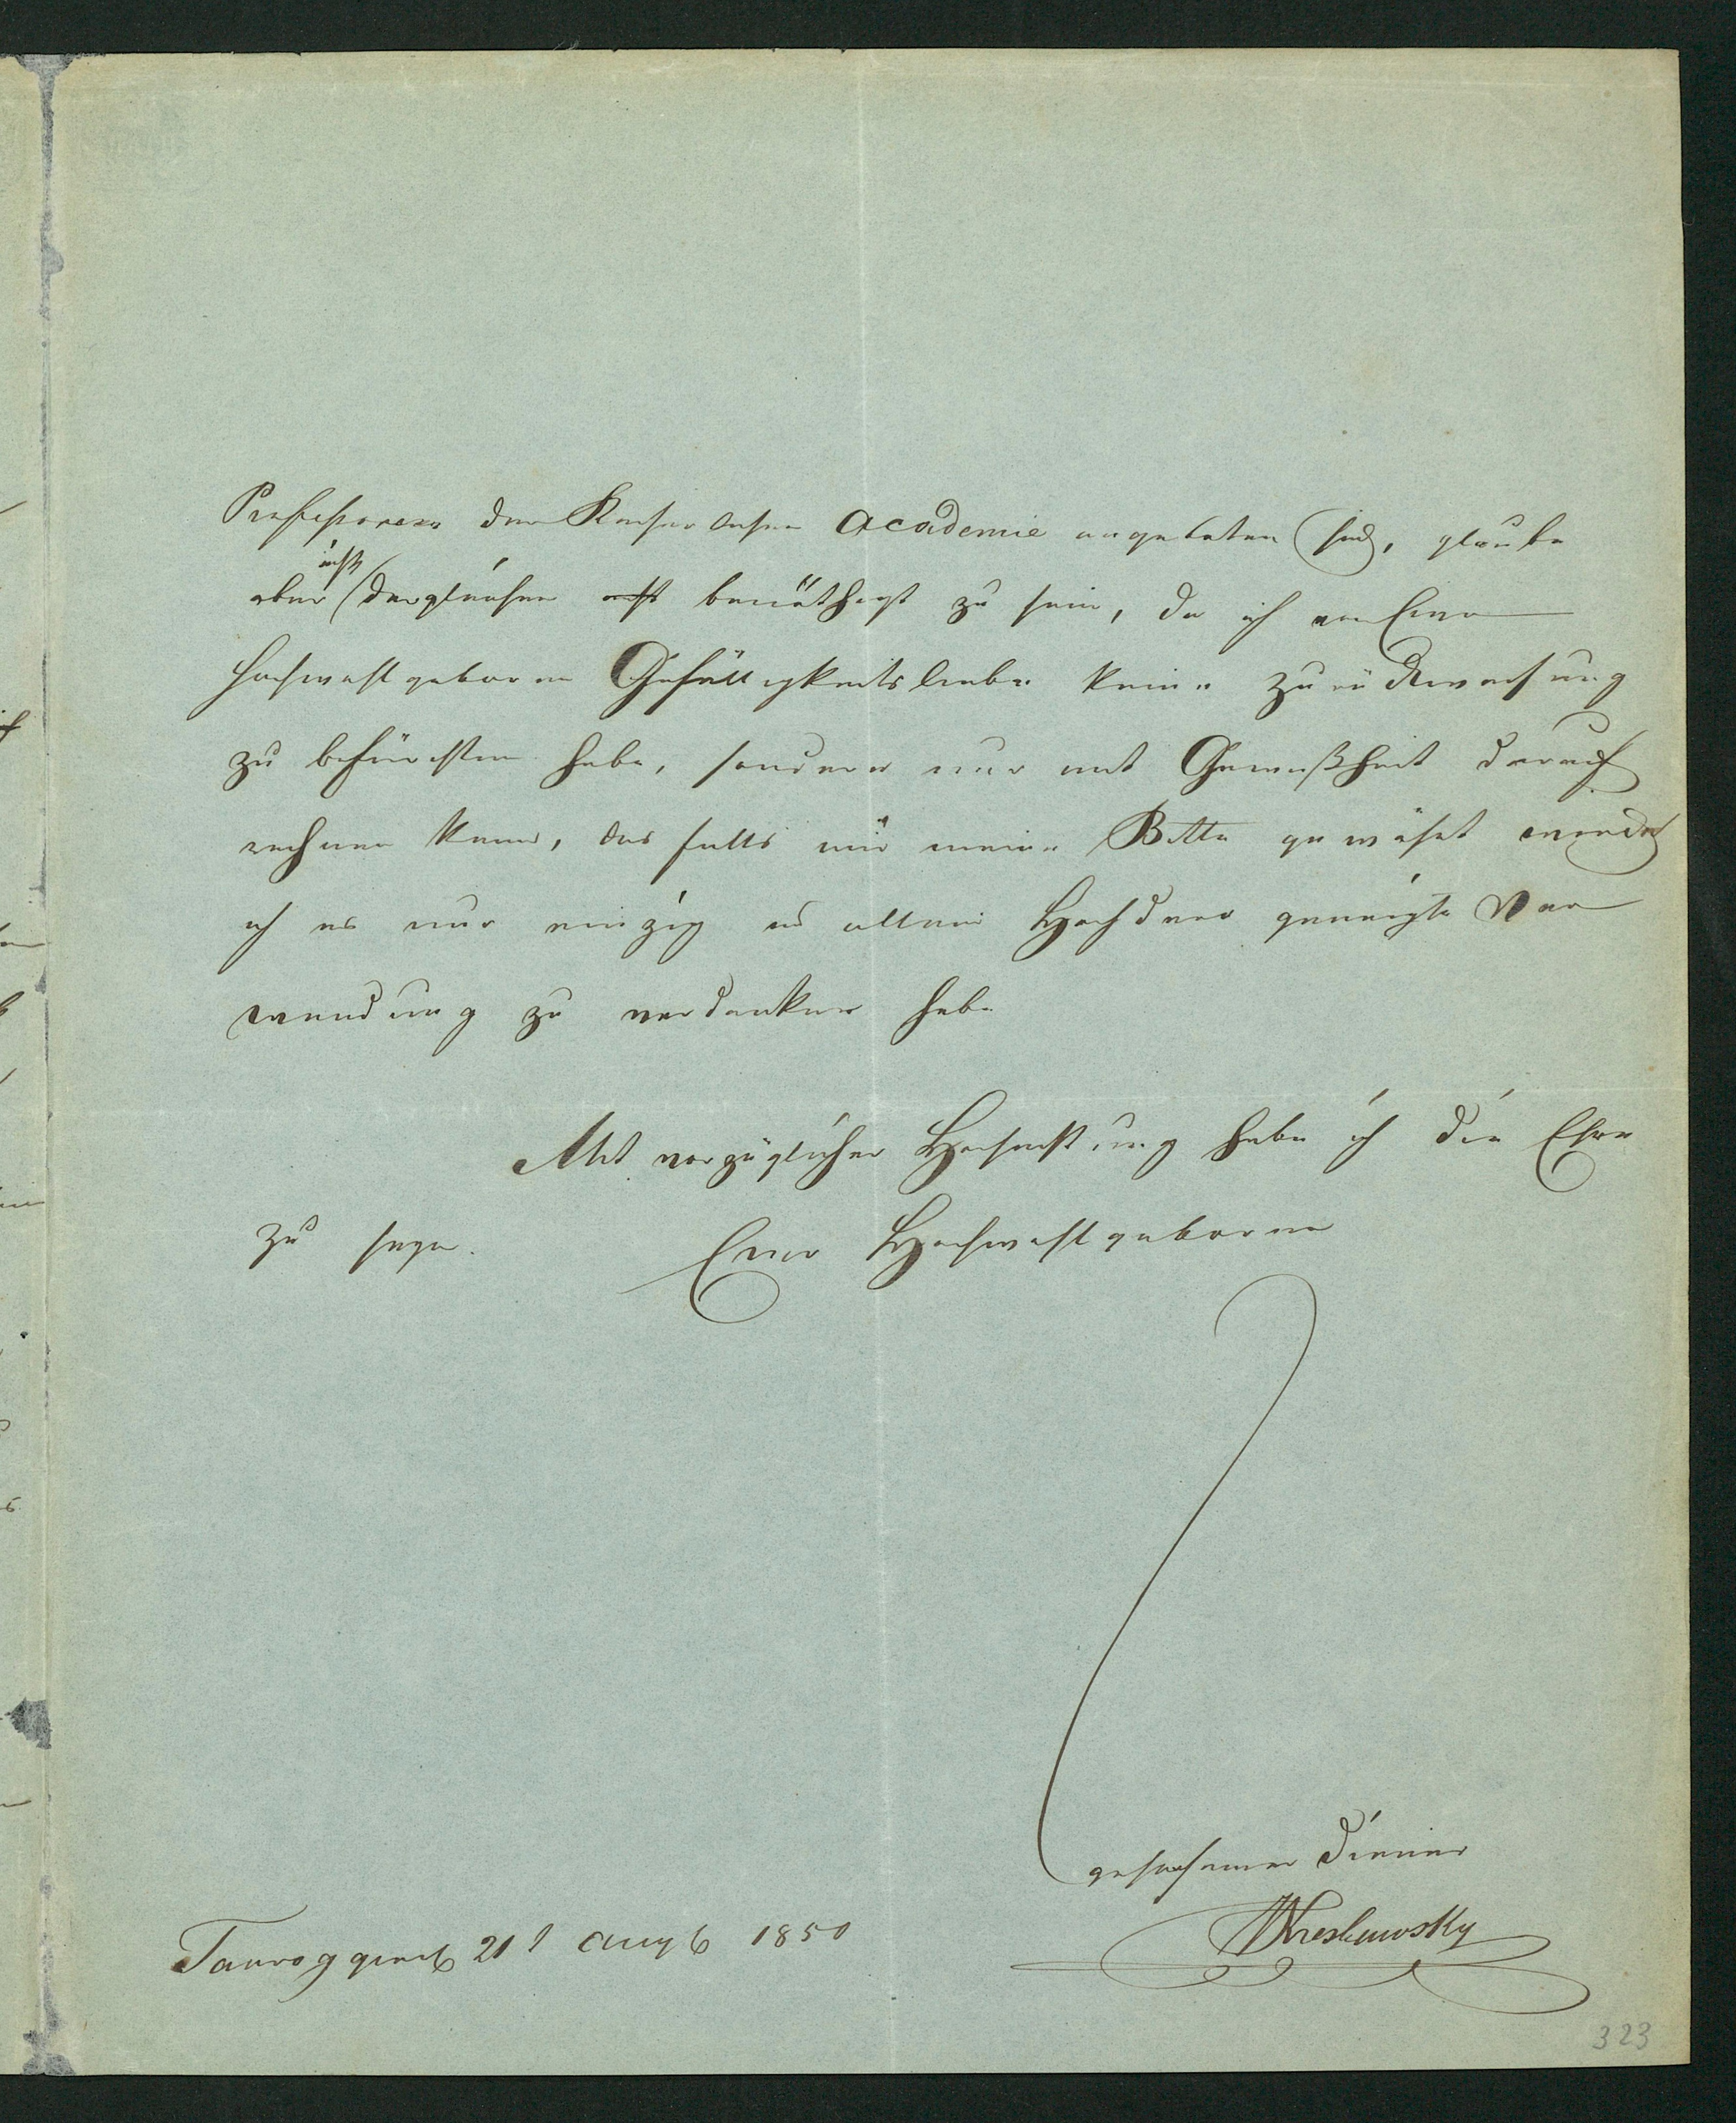 Professoren der Kaiserlichen Academie angeboten sind, glaube
nicht
aber dergleichen nicht benöthigt zu sein, da ich von Euer
Hochwohlgeboren Gefälligkeitsliebe keine Zurückweisung
zu befürchten habe, sondern nur mit Gewißheit darauf
rechnen kann, das falls mir meine Bitte gewährt werde
ich es nur einzig u allein Hochdero geneigte Ver
wendung zu verdanken habe
Mit vorzüglicher Hochachtung habe ich die Ehre
zu seyn. Euer Hochwohlgeboren
gehorsamer Diener
Tauroggen 21 Aug 1850
323